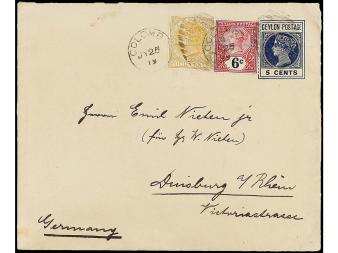 COLOMBO
CEYLON POSTAGE
6c
5 CENTS
Herrn Emil Nieten jr
W. Nieten)
Duisburg a/Rhein
Victoriastrasse
Germany